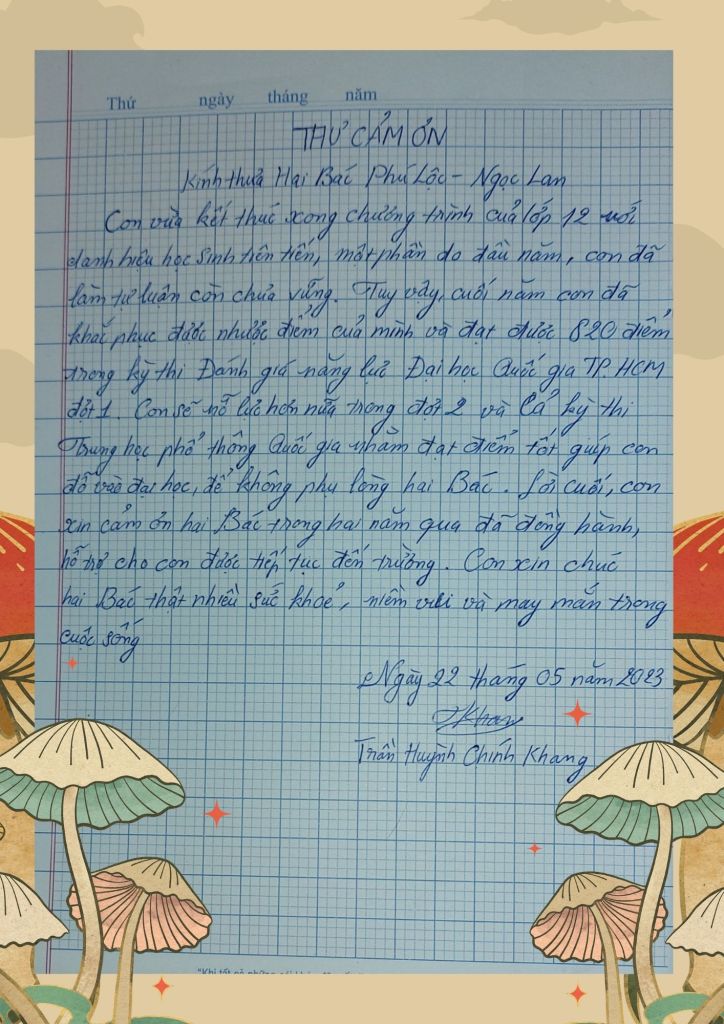 Thứ ngày tháng năm
THƯ CẢM ƠN
Kính thưa Hai Bác Phú Lộc - Ngọc Lan
Con vừa kết thúc xong chương trình của lớp 12 với
danh hiệu học sinh tiên tiến, một phần do đầu năm, con đã
làm tự luận còn chưa vững. Tuy vậy, cuối năm con đã
khắc phục được nhược điểm của mình và đạt được 820 điểm
trong kỳ thi Đánh giá năng lực Đại học Quốc gia TP. HCM
đợt 1. Con sẽ nỗ lực hơn nữa trong đợt 2 và cả kỳ thi
Trung học phổ thông Quốc gia nhằm đạt điểm tốt giúp con
đỗ vào đại học, để không phụ lòng hai Bác. Lời cuối, con
xin cảm ơn hai Bác trong hai năm qua đã đồng hành,
hỗ trợ cho con được tiếp tục đến trường. Con xin chúc
hai Bác thật nhiều sức khoẻ, niềm vui và may mắn trong
cuộc sống
Ngày 22 tháng 05 năm 2023
Khang
Trần Huỳnh Chính Khang